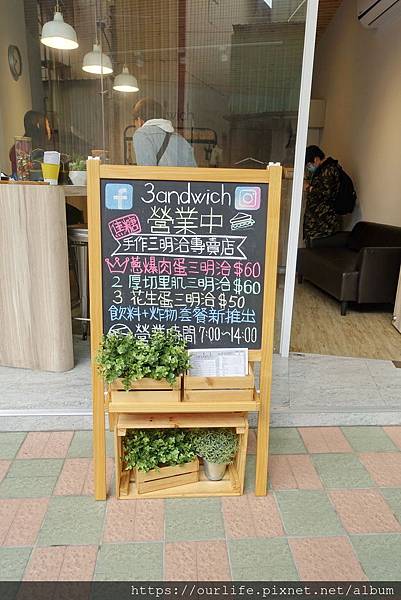 3andwich
營業中
焦糖
手作三明治專賣店
蔥爆肉蛋三明治$60
2 厚切里肌三明治$60
3 花生蛋三明治$50
飲料+炸物套餐新推出
營業時間7:00~14:00
https://ourlife.pixnet.net/album